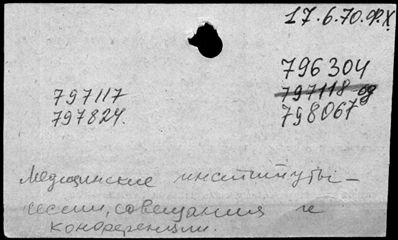 17.6.70.Ф.Х
796304
797117 797118 од
797824. 798067
Медицинские институты –
сессии, совещания и
конференции.